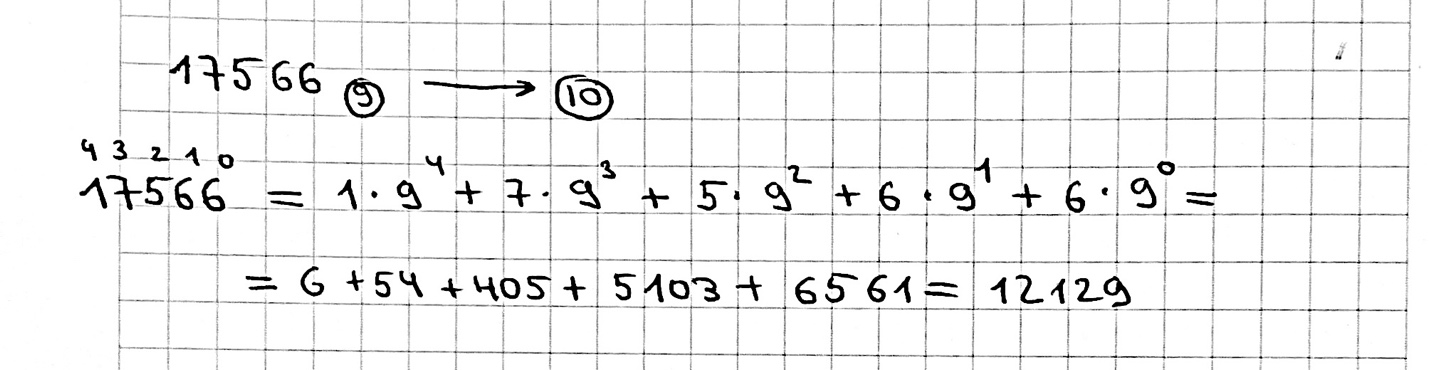 17566 ⑨ ⟶ ⑩
4 3 2 1 0
17566 = 1·9⁴ + 7·9³ + 5·9² + 6·9¹ + 6·9⁰ =
= 6 + 54 + 405 + 5103 + 6561 = 12129